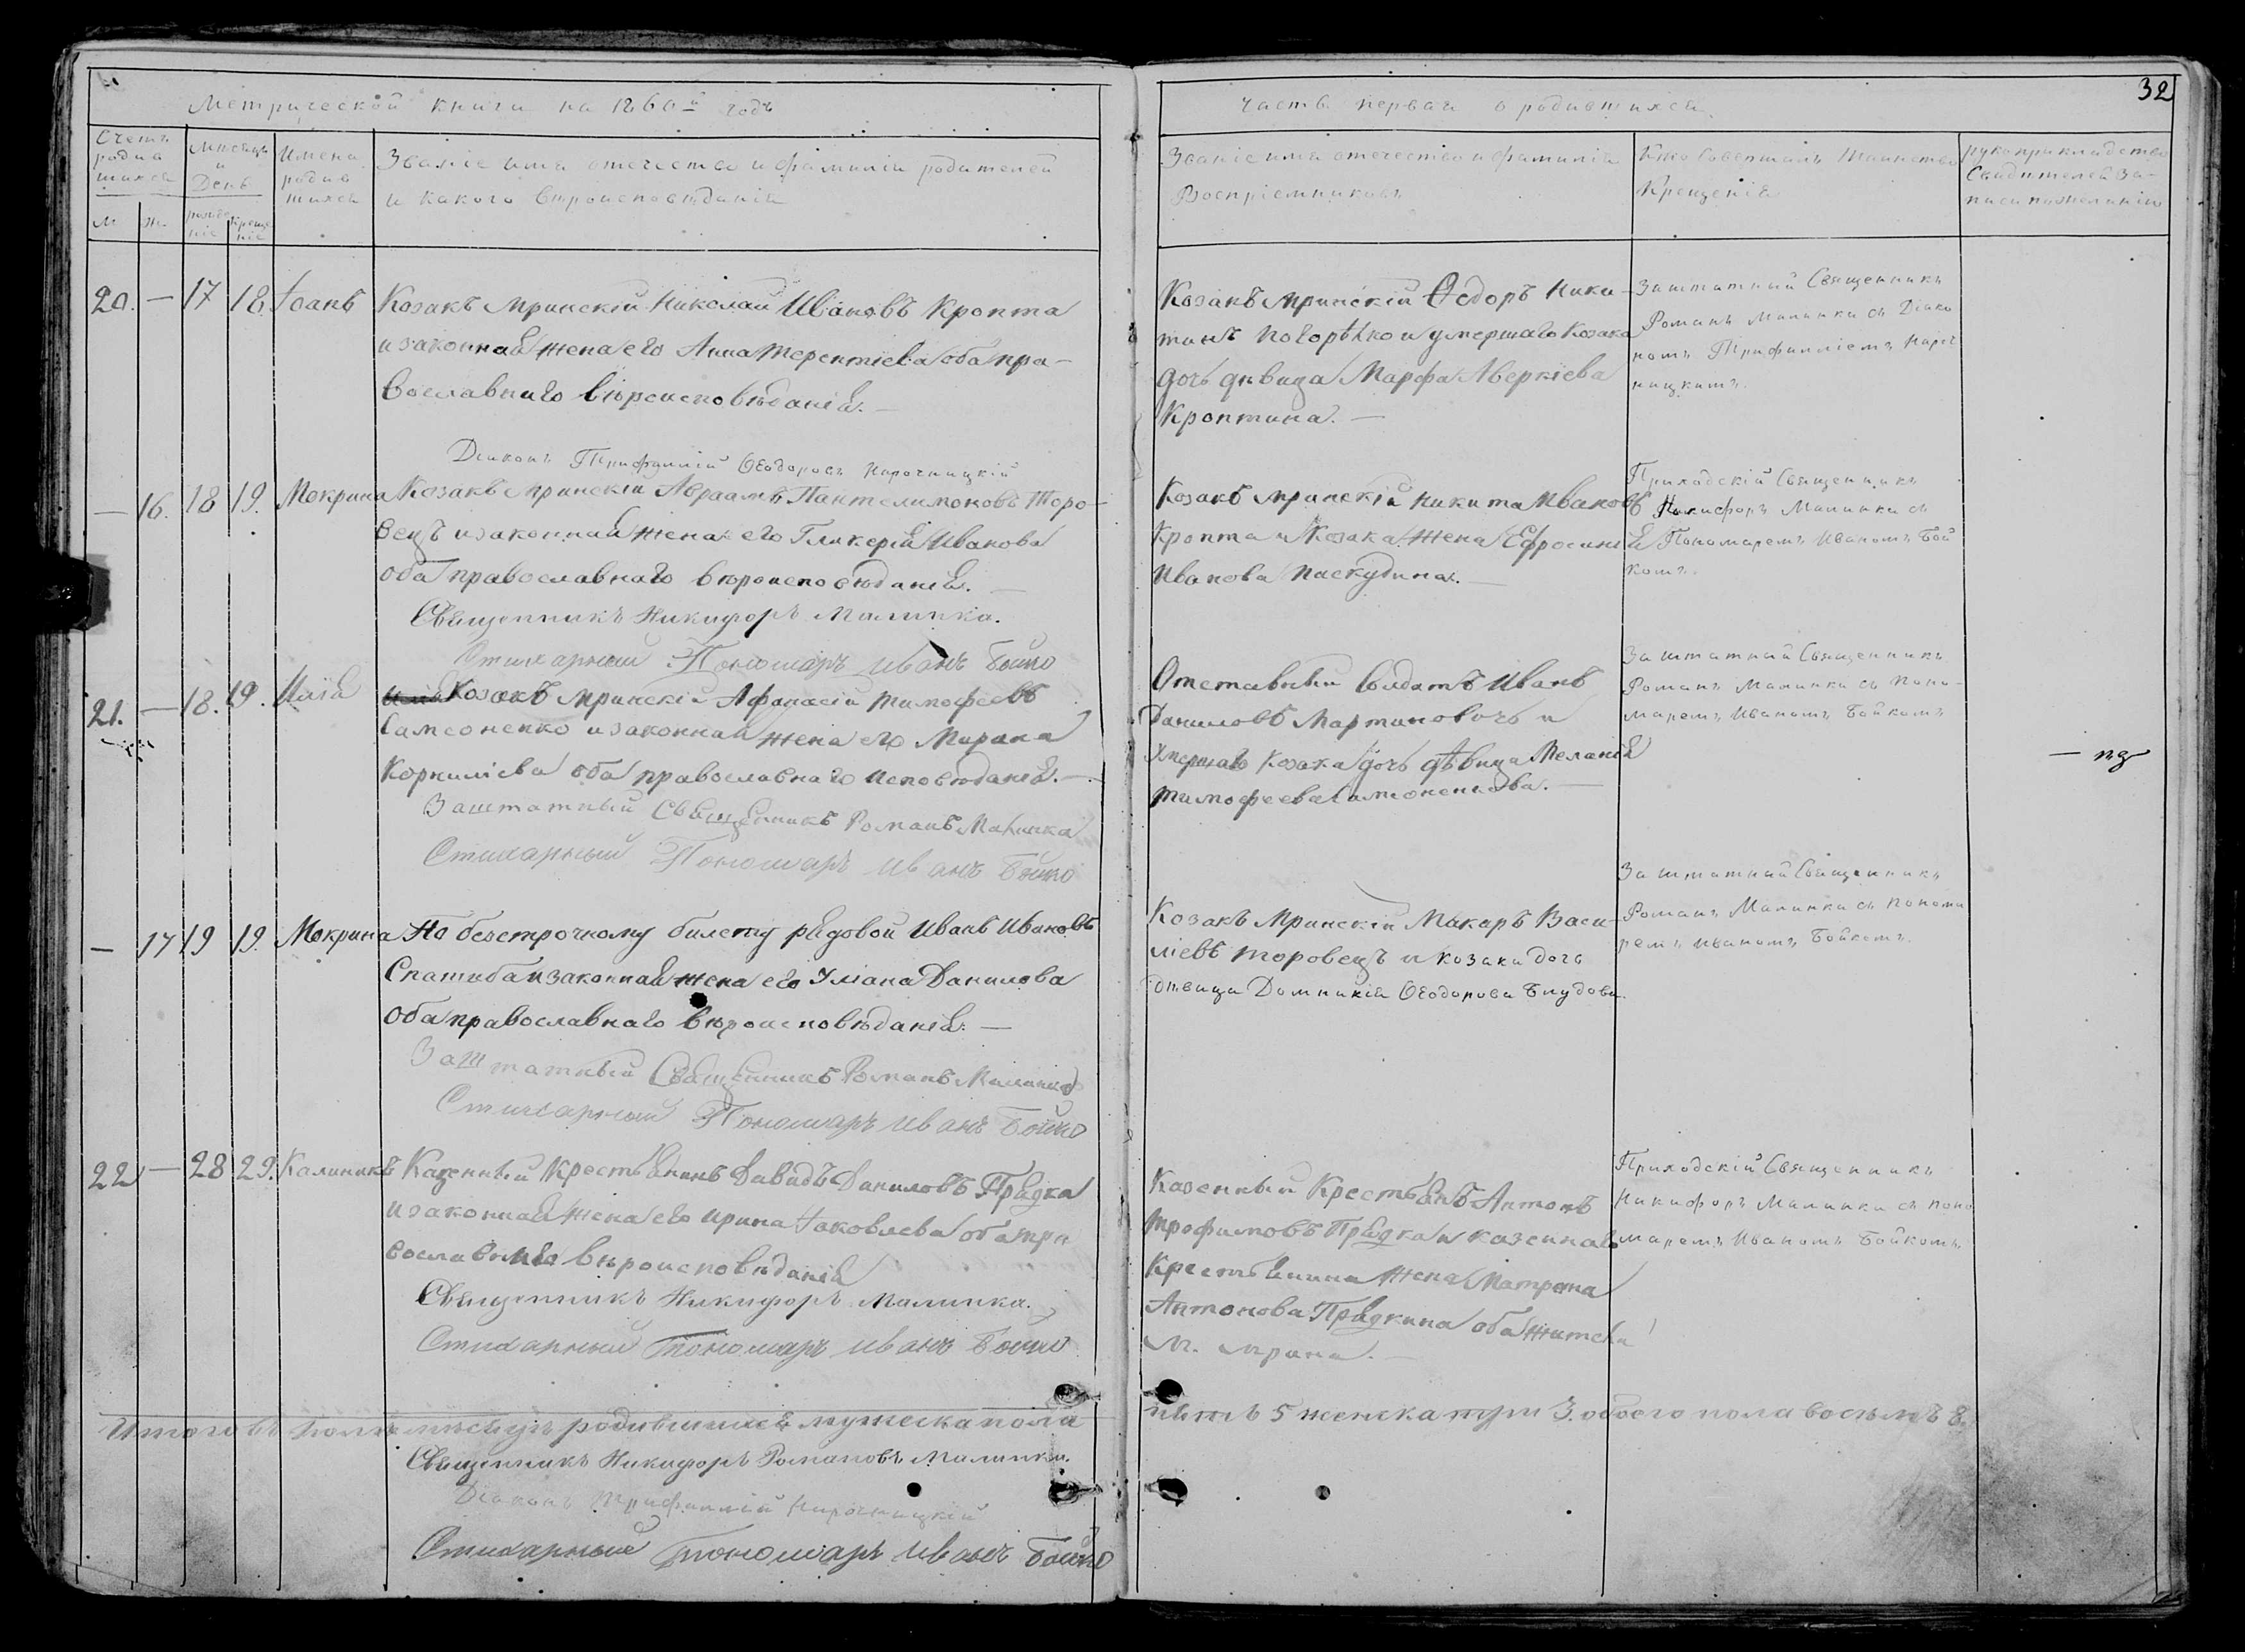 32
Метрической книги на 1860й годъ
часть первая о родившихся
Счетъ родившихся
Мѣсяцъ и День
Имена родившихся
Званіе имя отечество и фамилія родителей
и какого вѣроисповѣданія
м
ж.
рожденіе
крещеніе
Званіе имя отечество и фамилія
Воспріемниковъ
Кто Совершалъ Таинство
Крещенія
рукоприкладство
Свидителей за-
писи по желанію
20. — 17 18. Іоанъ
Козакъ мринскій Николай Ивановъ Кропта
и законная жена его Анна Терентіева оба пра-
вославнаго вѣроисповѣданія. —
Козакъ мринскій Ѳедоръ Ники-
тинъ Погорѣлко и умершаго Козака
дочь дѣвица Марфа Аверкіева
Кроптина. —
Заштатный Священникъ
Романъ Малинка съ Діако
номъ Трифилліемъ Нароч
ницкимъ.
Діаконъ Трифиллій Ѳеодоровъ Нарочницкій
— 16. 18 19. Мокрина
Козакъ мринскій Авраамъ Пантелимоновъ Торо-
вецъ и законная жена его Гликерія Иванова
оба православнаго вѣроисповѣданія. —
Священникъ Никифоръ Малинка.
Стихарный Пономарь Иванъ Бойко
Козакъ мринскій Никита Ивановъ
Кропта и Козака жена Ефросинія
Иванова Паскудина. —
Приходскій Священникъ
Никифоръ Малинка съ
Пономаремъ Иваномъ Бой
комъ.
21. — 18. 19. Илія
Козакъ мринскій Афанасій Тимофеевъ
Самсоненко и законная жена его Марина
Корниліева оба православнаго исповѣданія. —
Заштатный Священникъ Романъ Малинка
Стихарный Пономарь Иванъ Бойко
Отставный Солдатъ Иванъ
Даниловъ Мартиновичъ и
умершаго козака дочь дѣвица Меланія
Тимофеева Самсоненкова. —
Заштатный Священникъ
Романъ Малинка съ Поно-
маремъ Иваномъ Бойкомъ
— 17 19 19. Мокрина
По безсрочному билету рядовой Иванъ Ивановъ
Спатиба и законная жена его Уліана Данилова
оба православнаго вѣроисповѣданія. —
Заштатный Священникъ Романъ Малинка
Стихарный Пономарь Иванъ Бойко
Козакъ Мринскій Макаръ Васи-
ліевъ Торовецъ и козака дочь
дѣвица Домникія Ѳеодорова Блудова.
Заштатный Священникъ
Романъ Малинка съ Понома
ремъ Иваномъ Бойкомъ
22 — 28 29. Калиникъ
Казенный Крестьянинъ Давидъ Даниловъ Прядка
и законная жена его Ирина Іаковлева оба пра
вославнаго вѣроисповѣданія
Священникъ Никифоръ Малинка.
Стихарный Пономарь Иванъ Бойко
Казенный Крестьянъ Антонъ
Трофимовъ Прядка и казеннаго
Крестьянина жена Матрона
Антонова Прядкина оба жители
м. Мрина. —
Приходскій Священникъ
Никифоръ Малинка съ Поно
маремъ Иваномъ Бойкомъ
Итого въ Іюлѣ мѣсяцѣ родившихся мужеска пола
пять 5 женска три 3. обоего пола восемъ 8.
Священникъ Никифоръ Романовъ Малинка.
Діаконъ Трифиллій Нарочницкій
Стихарный Пономарь Иванъ Бойко